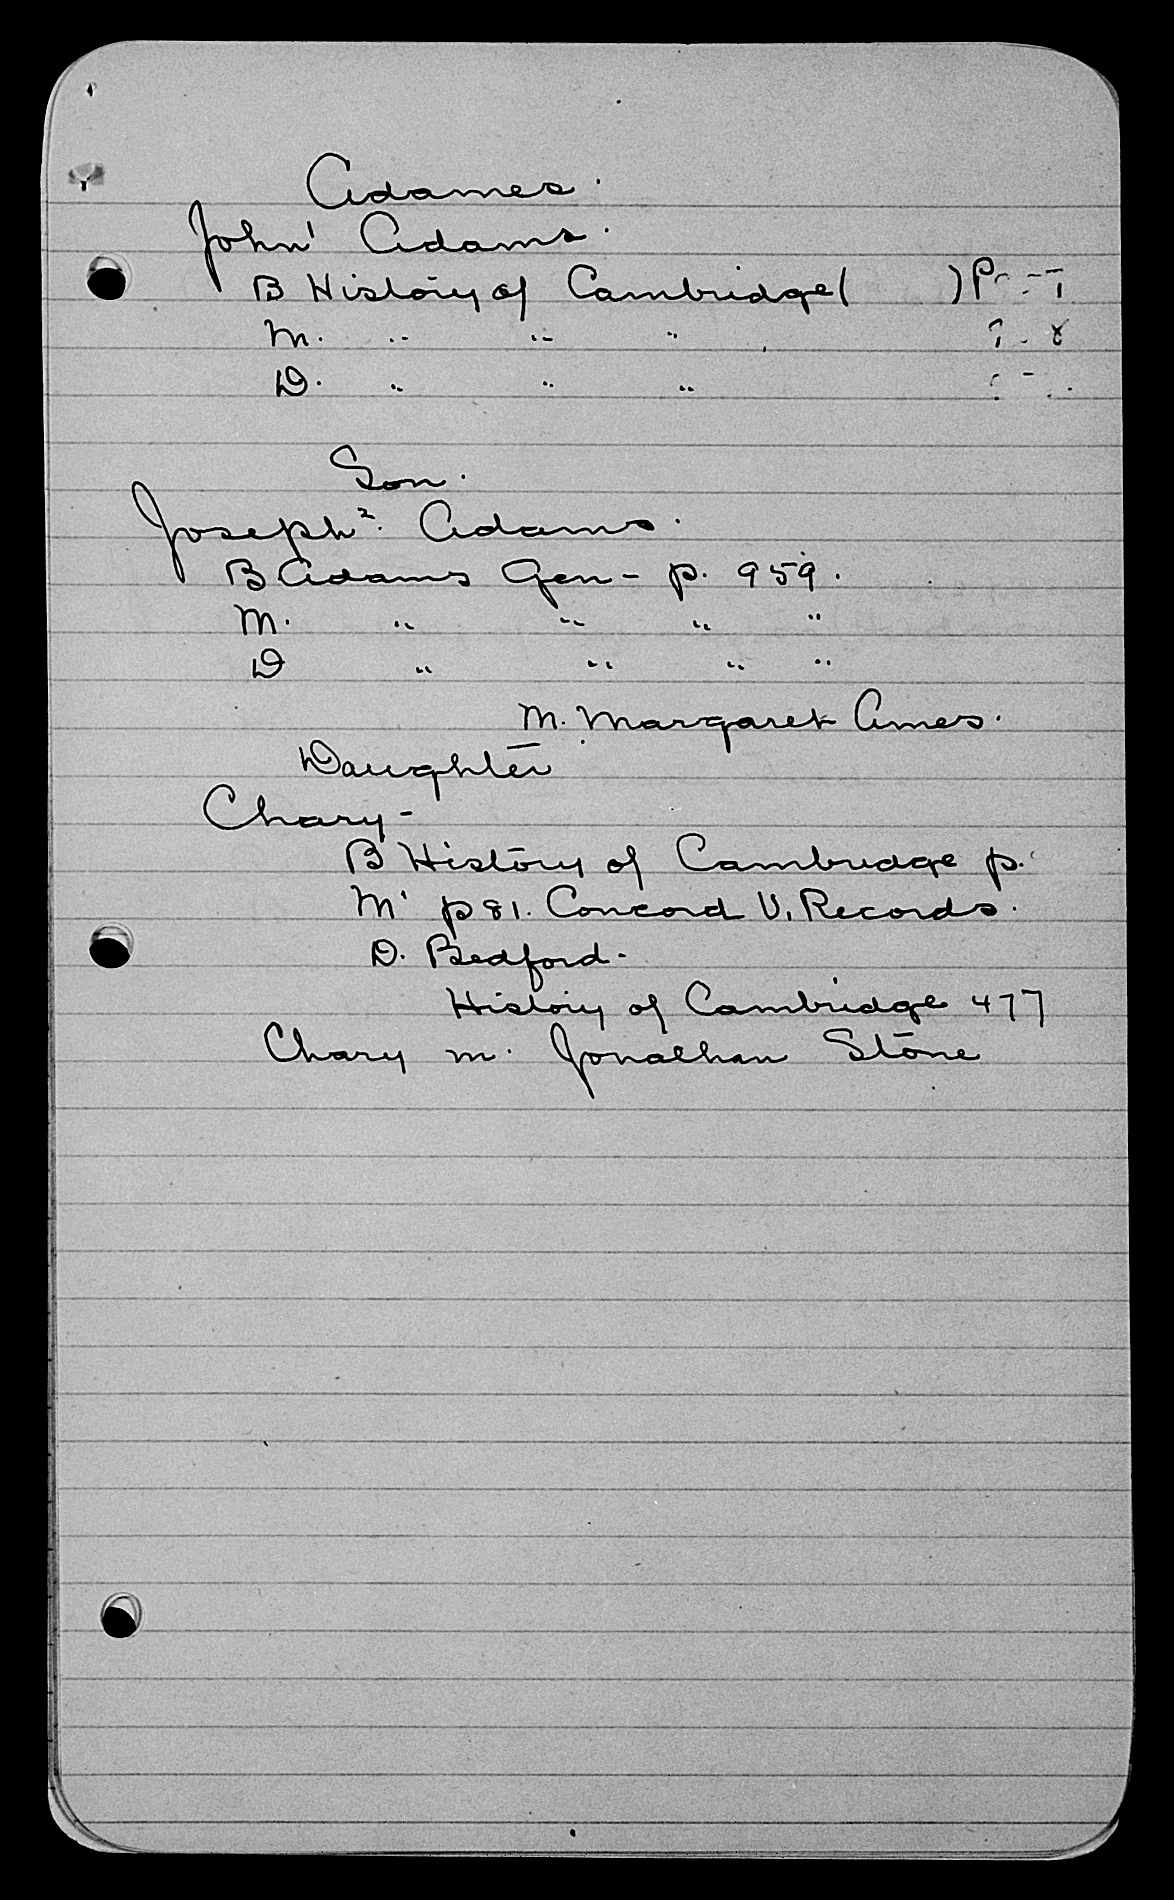 Adames.
John¹ Adams.
B History of Cambridge ( ) P
M. " " "
D. " " "
Son.
Joseph². Adams.
B Adams Gen - p. 959.
M. " " " "
D " " " "
M. Margaret Ames.
Daughter
Chary -
B History of Cambridge p.
M' p 81. Concord V. Records.
D. Bedford -
History of Cambridge 477
Chary m. Jonathan Stone